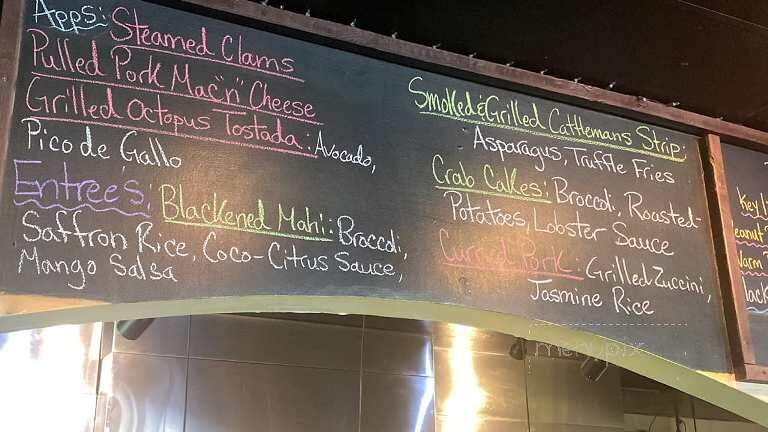 Apps: Steamed Clams
Pulled Pork Mac "n" Cheese
Grilled Octopus Tostada: Avocado,
Pico de Gallo
Entree's: Blackened Mahi: Broccoli,
Saffron Rice, Coco-Citrus Sauce,
Mango Salsa
Smoked & Grilled Cattlemans Strip:
Asparagus, Truffle Fries
Crab Cakes: Broccoli, Roasted-
Potatoes, Lobster Sauce
Curried Pork: Grilled Zuccini,
Jasmine Rice
Key
Warm
menupix